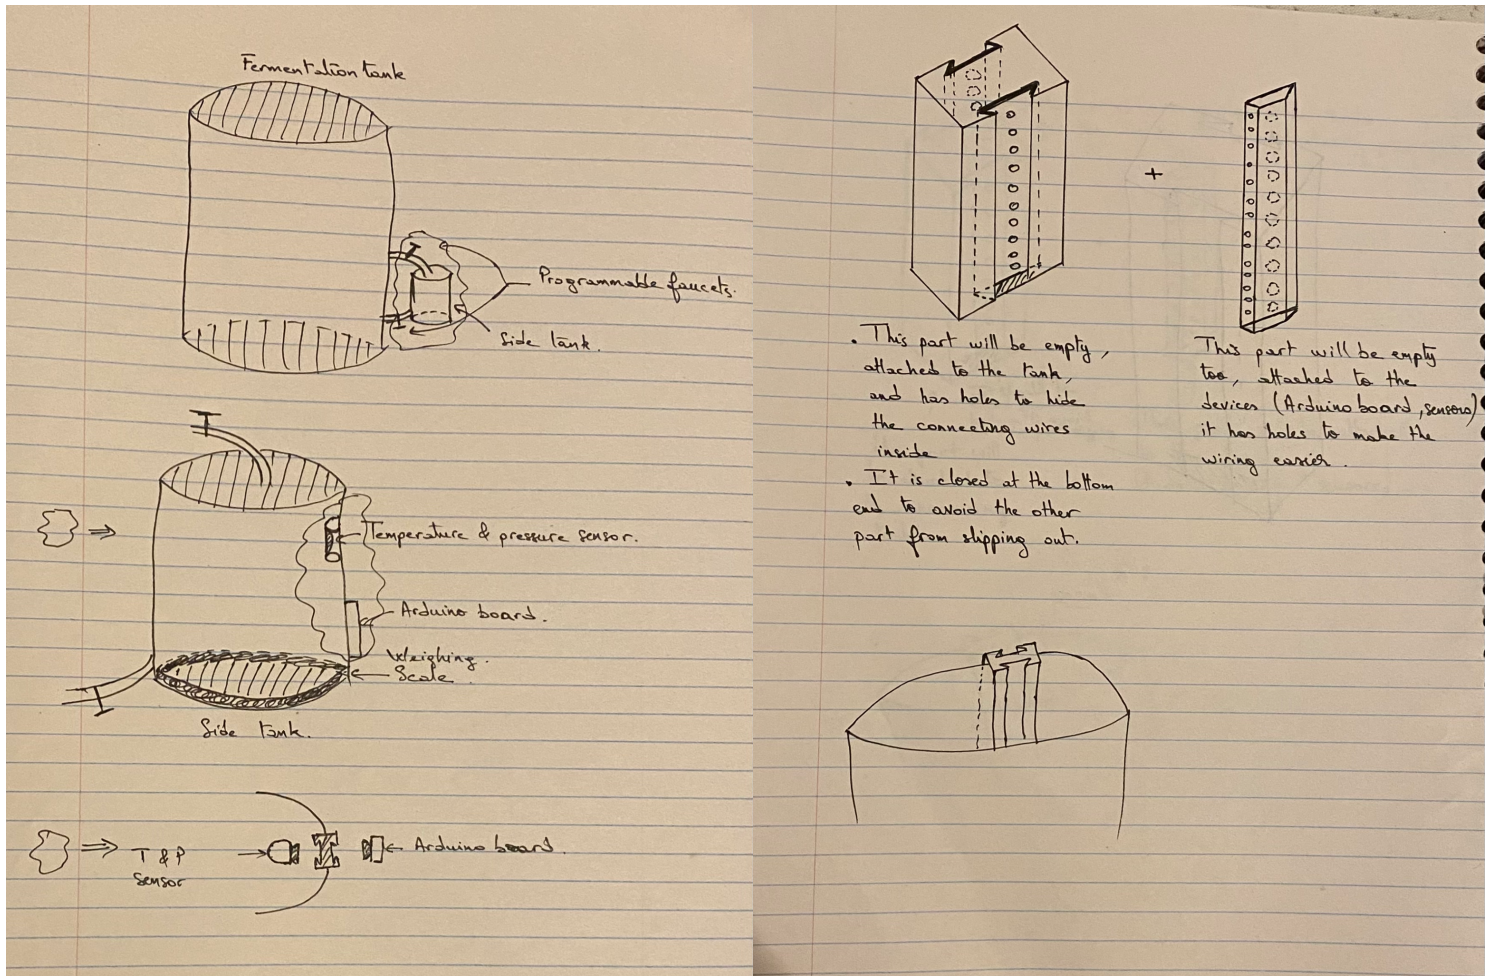 Fermentation tank
Programmable faucets.
Side tank.
Temperature & pressure sensor.
Arduino board.
Weighing
Scale
Side tank.
T & P
sensor
Arduino board.
+
. This part will be empty,
attached to the tank,
and has holes to hide
the connecting wires
inside
. It is closed at the bottom
end to avoid the other
part from slipping out.
This part will be empty
too, attached to the
devices (Arduino board, sensors)
it has holes to make the
wiring easier.